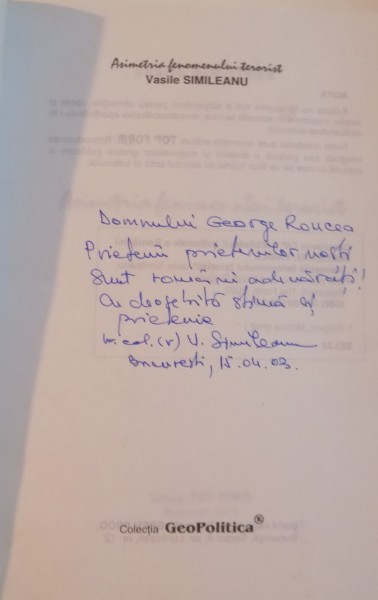 Asimetria fenomenului terorist
Vasile SIMILEANU
Domnului George Roncea
Prietenii prietenilor noștri
sunt românii adevărați!
Cu deosebită stimă și
prietenie
lt. col. (r) V. Simileanu
București, 15.04.03.
Colecția GeoPolitica®